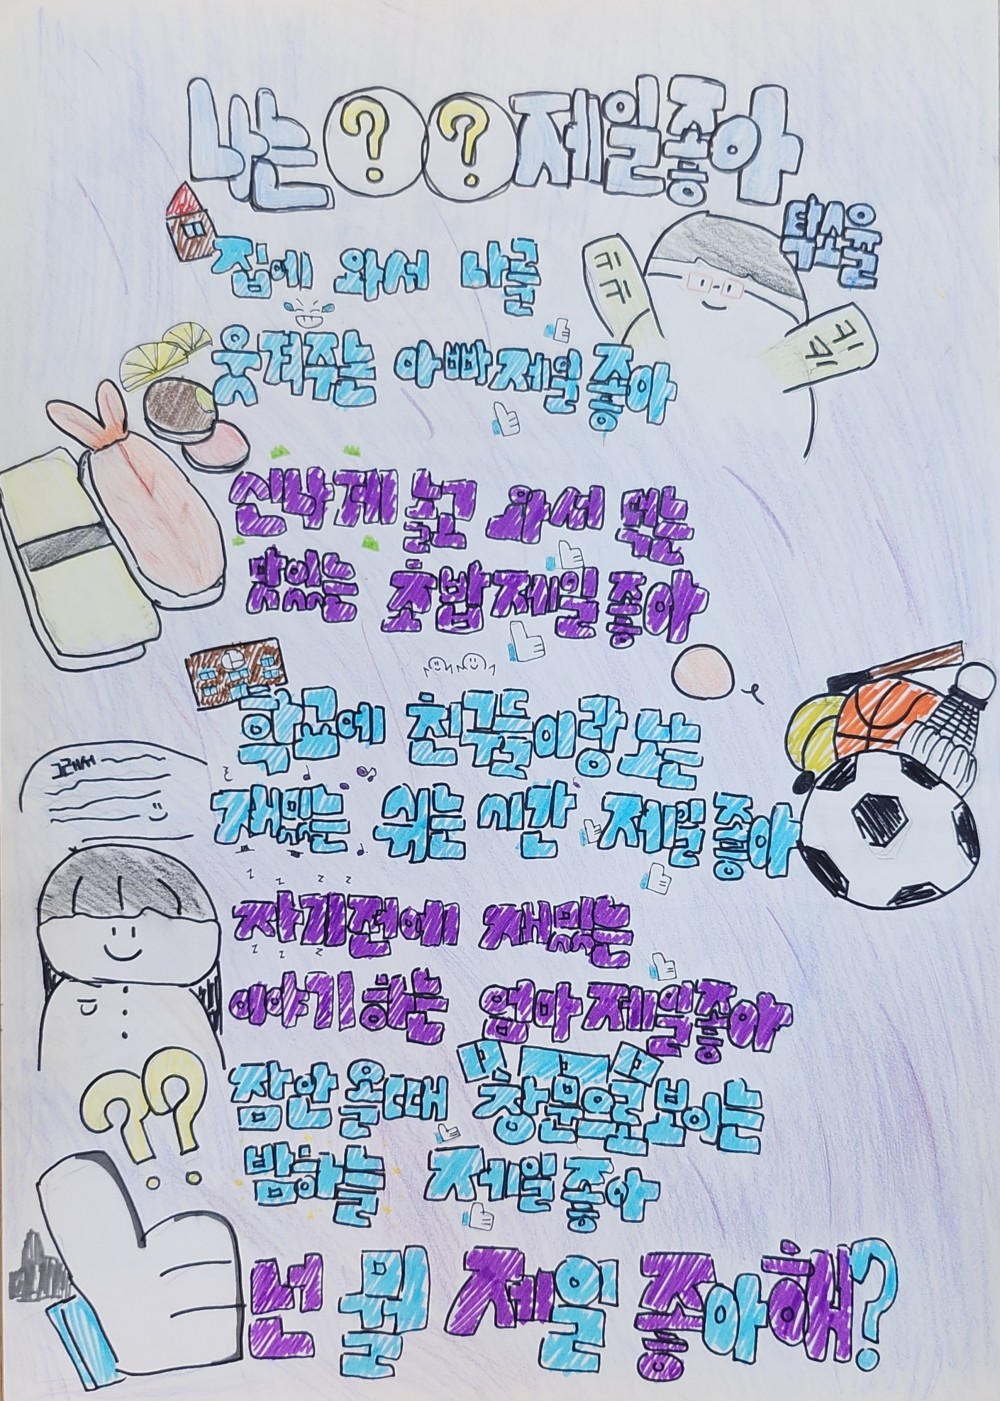 나는 ?? 제일 좋아
탁소율
집에 와서 나를
키키
키키
웃겨주는 아빠 제일 좋아
신나게 놀고 와서 먹는
맛있는 초밥 제일 좋아
학교에 친구들이랑 노는
그래서
재밌는 쉬는 시간 제일 좋아
z z z z
자기전에 재밌는
z z z
이야기 하는 엄마 제일 좋아
??
잠 안 올 때 창문으로 보이는
밤하늘 제일 좋아
넌 뭘 제일 좋아해?